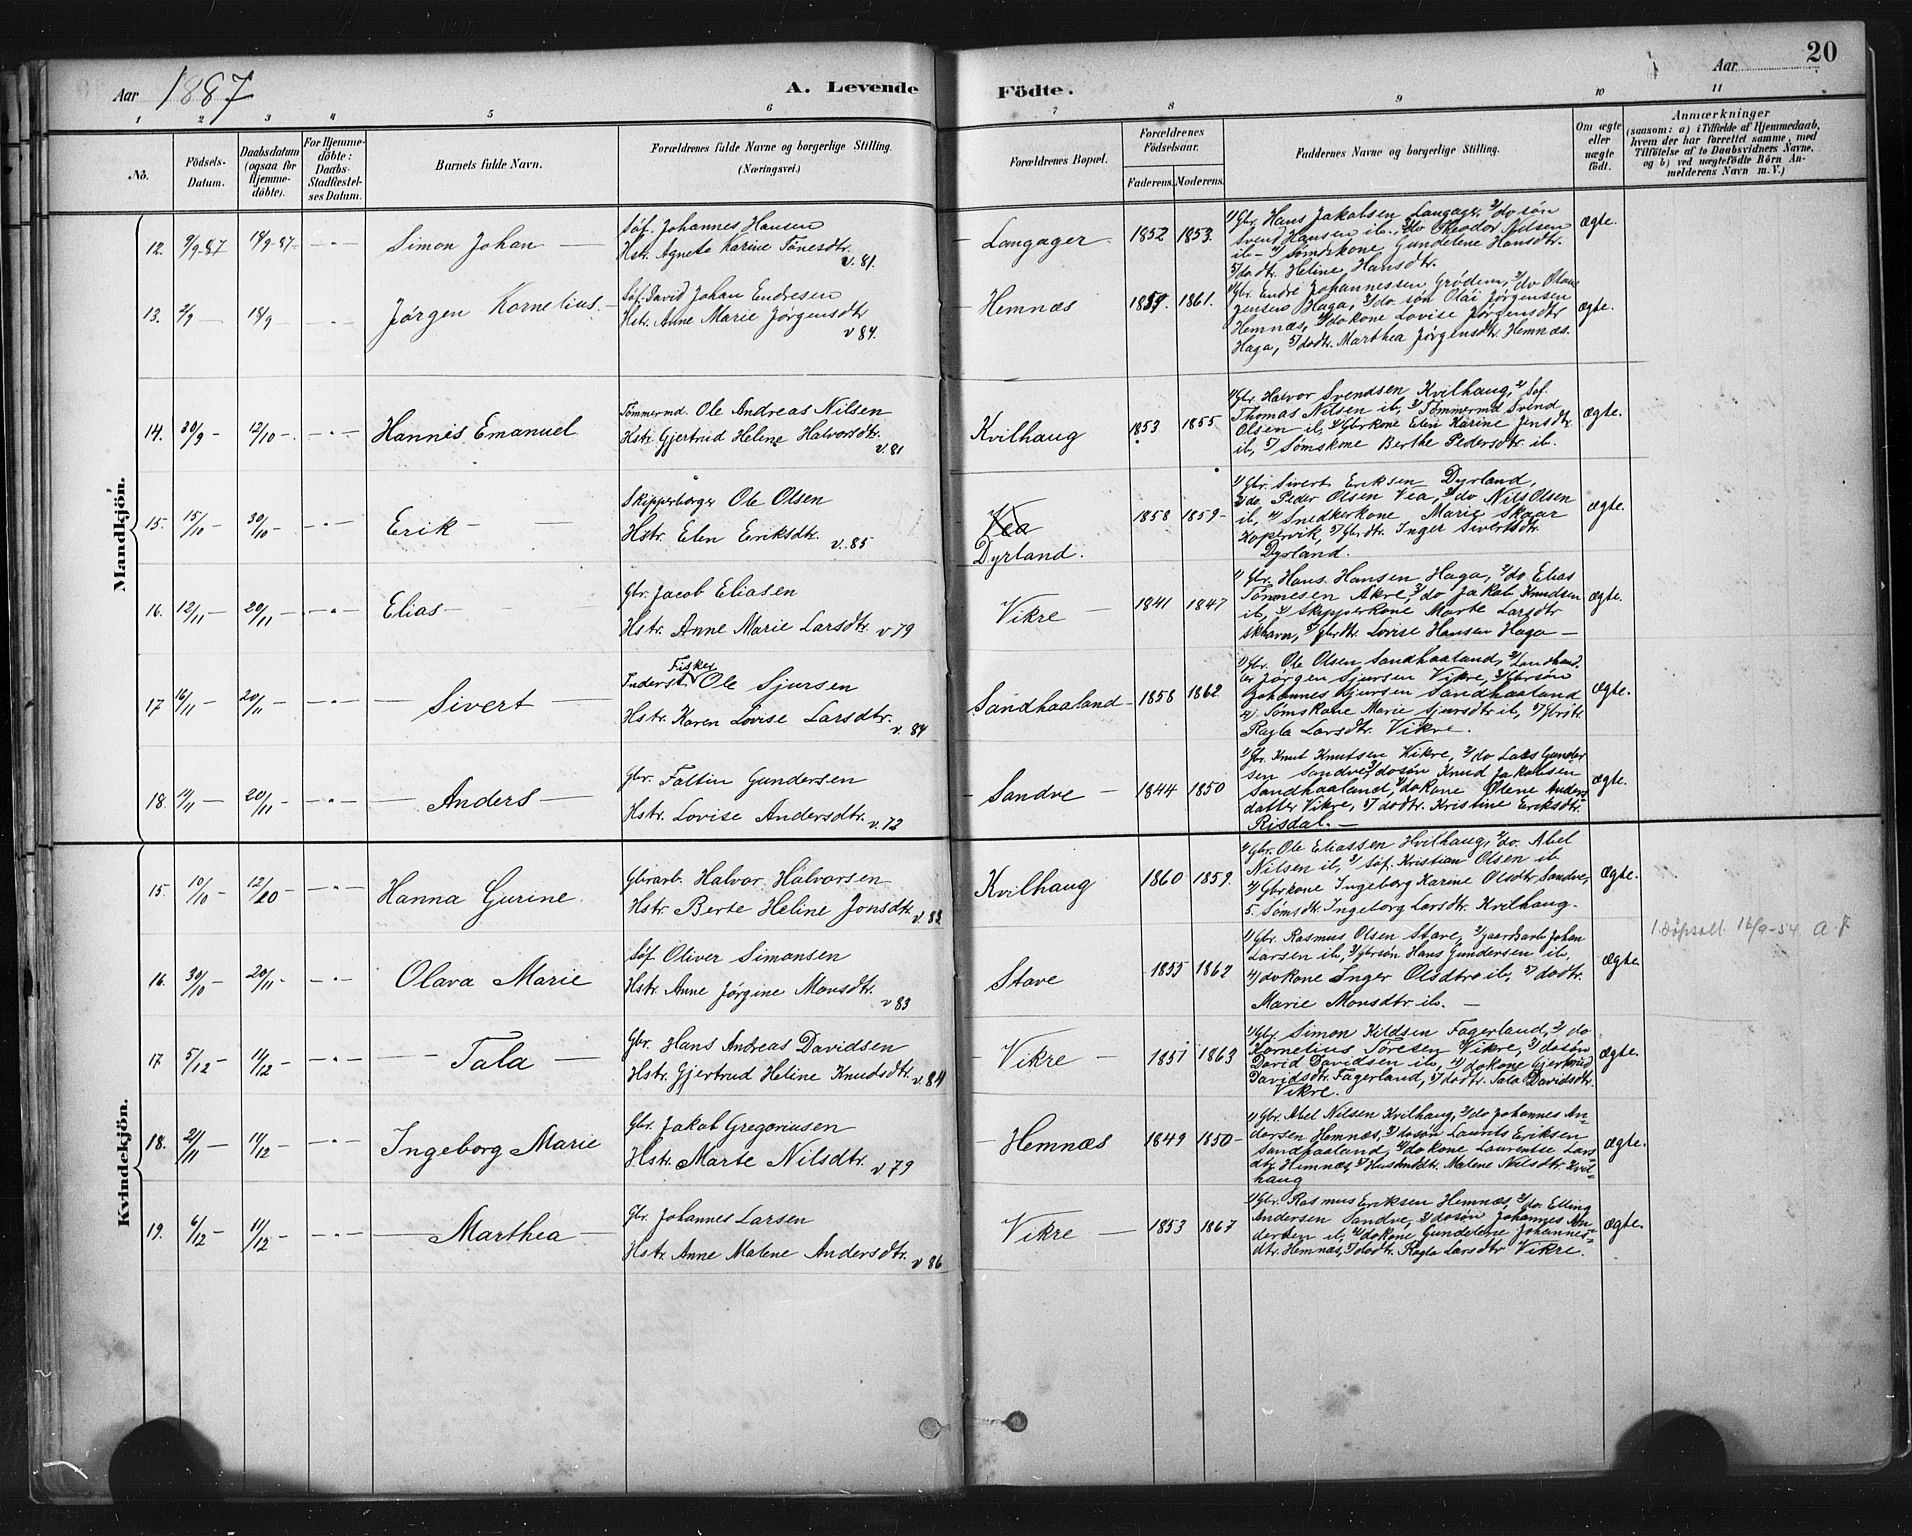 20
Aar 1887
A. Levende Födte.
Aar
1 2 3 4 5 6 7 8 9 10 11
No.
Födsels-Datum.
Daabsdatum (ogsaa for Hjemmedöbte).
For Hjemmedöbte: Daabs-Stadfæstelses Datum.
Barnets fulde Navn.
Forældrenes fulde Navne og borgerlige Stilling. (Næringsvei.)
Forældrenes Bopæl.
Forældrenes Födselsaar.
Faderens. Moderens.
Faddernes Navne og borgerlige Stilling.
Om ægte eller uægte födt.
Anmærkninger
(saasom: a) i Tilfælde af Hjemmedaab, hvem der har forrettet samme, med Tilföielse af to Daabsvidners Navne, og b) ved uægtefödte Börn Anmelderens Navn m. V.)
Mandkjön.
12. 9/9-87 18/9-87 - " - Simon Johan
Søf. Johannes Hansen
Hstr. Agnete Karine Tönesdtr.
v. 81.
Langager 1852 1853.
1/ Gbr. Hans Jakobsen Langager, 2/ do søn
Svend Hansen ib., 3/ do Theodor Nilsen
ib - 4/ Sømdskone Gundelene Hansdtr.
5/ do dtr. Heline Hansdtr.
ægte.
13. 2/9 18/9 - " - Jørgen Kornelius.
Søf. David Johan Endresen
Hstr. Anne Marie Jørgensdtr
v 84.
Hemnæs 1859. 1861.
1/ Gbr. Endre Johannessen Grödem, 2/ do Olaus
Jensens Haga, 3/ do søn Olai Jørgensen
Hemnæs, 4/ do kone Lovise Jørgensdtr
Haga, 5/ dodtr. Marthea Jørgensdtr. Hemnæs.
ægte.
14. 30/9 - 12/10 - - " - Hannes Emanuel
Tömmermd. Ole Andreas Nilsen
Hstr. Gjertrud Heline Halvorsdtr.
v. 81
Kvilhaug 1853 1855
1/ Gbr. Halvor Svendsen Kvilhaug, 2/ Søf.
Thomas Nilsen ib, 3/ Tömmermd Svend
Olsen ib, 4/ Gbrkone Elen Karine Jensdtr
ib, 5/ Sømskone Berthe Pedersdtr ib.
ægte.
15. 15/10 30/10 - " - Erik
Skipperborger Ole Olsen
Hstr. Elen Eriksdtr. v. 85
Vea
Dyrland. 1858 1859 -
1/ Gbr. Sivert Eriksen Dyrland,
2/ do. Peder Olsen Vea, 3/ do Nils Olsen
ib, 4/ Snedkerkone Marie Skaar
Kopervik, 5/ Gbrdtr. Inger Sivertsdtr.
Dyrland.
ægte.
16. 12/11 20/11 - " - Elias
Gbr. Jacob Eliasen
Hstr. Anne Marie Larsdtr. v 79
Vikre 1841 1847
1/ Gbr. Hans Hansen Haga, 2/ do Elias
Tönnesen Akre, 3/ do Jakob Knudsen
ib, 4/ Skipperkone Marte Larsdtr
Skhavn, 5/ Gbrdtr Lovise Hansen Haga -
ægte.
17 16/11 20/11 - " - Sivert
Fisker
Inderst Ole Sjursen
Hstr. Karen Lovise Larsdtr. v. 84
Sandhaaland 1858 1862
1/ Gbr. Ole Olsen Sandhaaland, 2/ Landhandler Jørgen Sjursen Vikre, 3/ Gbrsøn
Johannes Sjursen Sandhaaland
4/ Sømskone Marie Sjursdtr ib,
Ragla Larsdtr. Vikre.
ægte.
18. 20/11 - " - Anders
Gbr. Faltin Gundersen
Hstr. Lovise Andersdtr. v. 72
Sandve 1844 1850
1/ Gbr. Knut Knutsen Vikre, 2/ do Lars Gundersen Sandve, 3/ dosøn Knud Jakobsen
Sandhaaland, 4/ do kone Olene Andersdatter Vikre, 5/ dodtr. Kristine Eriksdtr.
Risdal. -
ægte.
Kvindekjön.
15. 10/10 12/20 - " - Hanna Gurine.
Gbrarb. Halvor Halvorsen
Hstr. Berte Heline Jonsdtr. v. 83
Kvilhaug 1860 1859.
1/ Gbr. Ole Eliassen Hvilhaug, 2/ do. Abel
Nilsen ib, 3/ Søf. Kristian Olsen ib
4/ Gbrkone Ingeborg Karine Olsdtr Sandve,
5. Sømsdtr. Ingeborg Larsdtr. Kvilhaug.
ægte.
16. 30/10 20/11 - " - Olava Marie
Søf. Oliver Simonsen
Hstr. Anne Jørgine Monsdtr.
v 83
Stave 1855 1862
1/ Gbr. Rasmus Olsen Stave, 2/ gaardsarb Johan
Larsen ib, 3/ Gbrsøn Hans Gundersen ib,
4/ dokone Inger Olsdtr ib, 5/ dodtr.
Marie Monsdtr ib. -
ægte
1. döpsatt. 16/9-54 a. F
17 5/12 - 11/12 - " - Tala
Gbr. Hans Andreas Davidsen
Hstr. Gjertrud Heline Knudsdtr. v. 84
Vikre 1851 1863
1/ Gbr. Simon Kildsen Fagerland, 2/ do
Kornelius Toresen Vikre, 3/ dosøn
David Davidsen ib, 4/ dokone Gjertrud
Davidsdtr. Fagerland, 5/ dodtr. Tala Davidsdtr.
Vikre.
ægte.
18. 21/11 11/12 - " - Ingeborg Marie
Gbr. Jakob Gregoriusen
Hstr. Marte Nilsdtr. v 79
Hemnæs 1849 1850 -
1/ Gbr. Abel Nilsen Kvilhaug, 2/ do Johannes Andersen Hemnæs, 3/ dosøn Laurits Eriksen
Sandhaaland, 4/ dokone Laurentse Larsdtr. Hemnæs, 5/ Husmdtr. Malene Nilsdtr Kvilhaug
ægte.
19. 6/12 11/12 - " - Marthea
Gbr. Johannes Larsen
Hstr. Anne Malene Andersdtr. v 86
Vikre 1853 1867
1/ Gbr. Rasmus Eriksen Hemnæs, 2/ do. Elling
Andersen Sandve, 3/ dosøn Johannes Andersen ib, 4/ dokone Gundelene Johannesdtr. Hemnæs, 5/ dodtr. Ragla Larsdtr Vikre.
ægte.